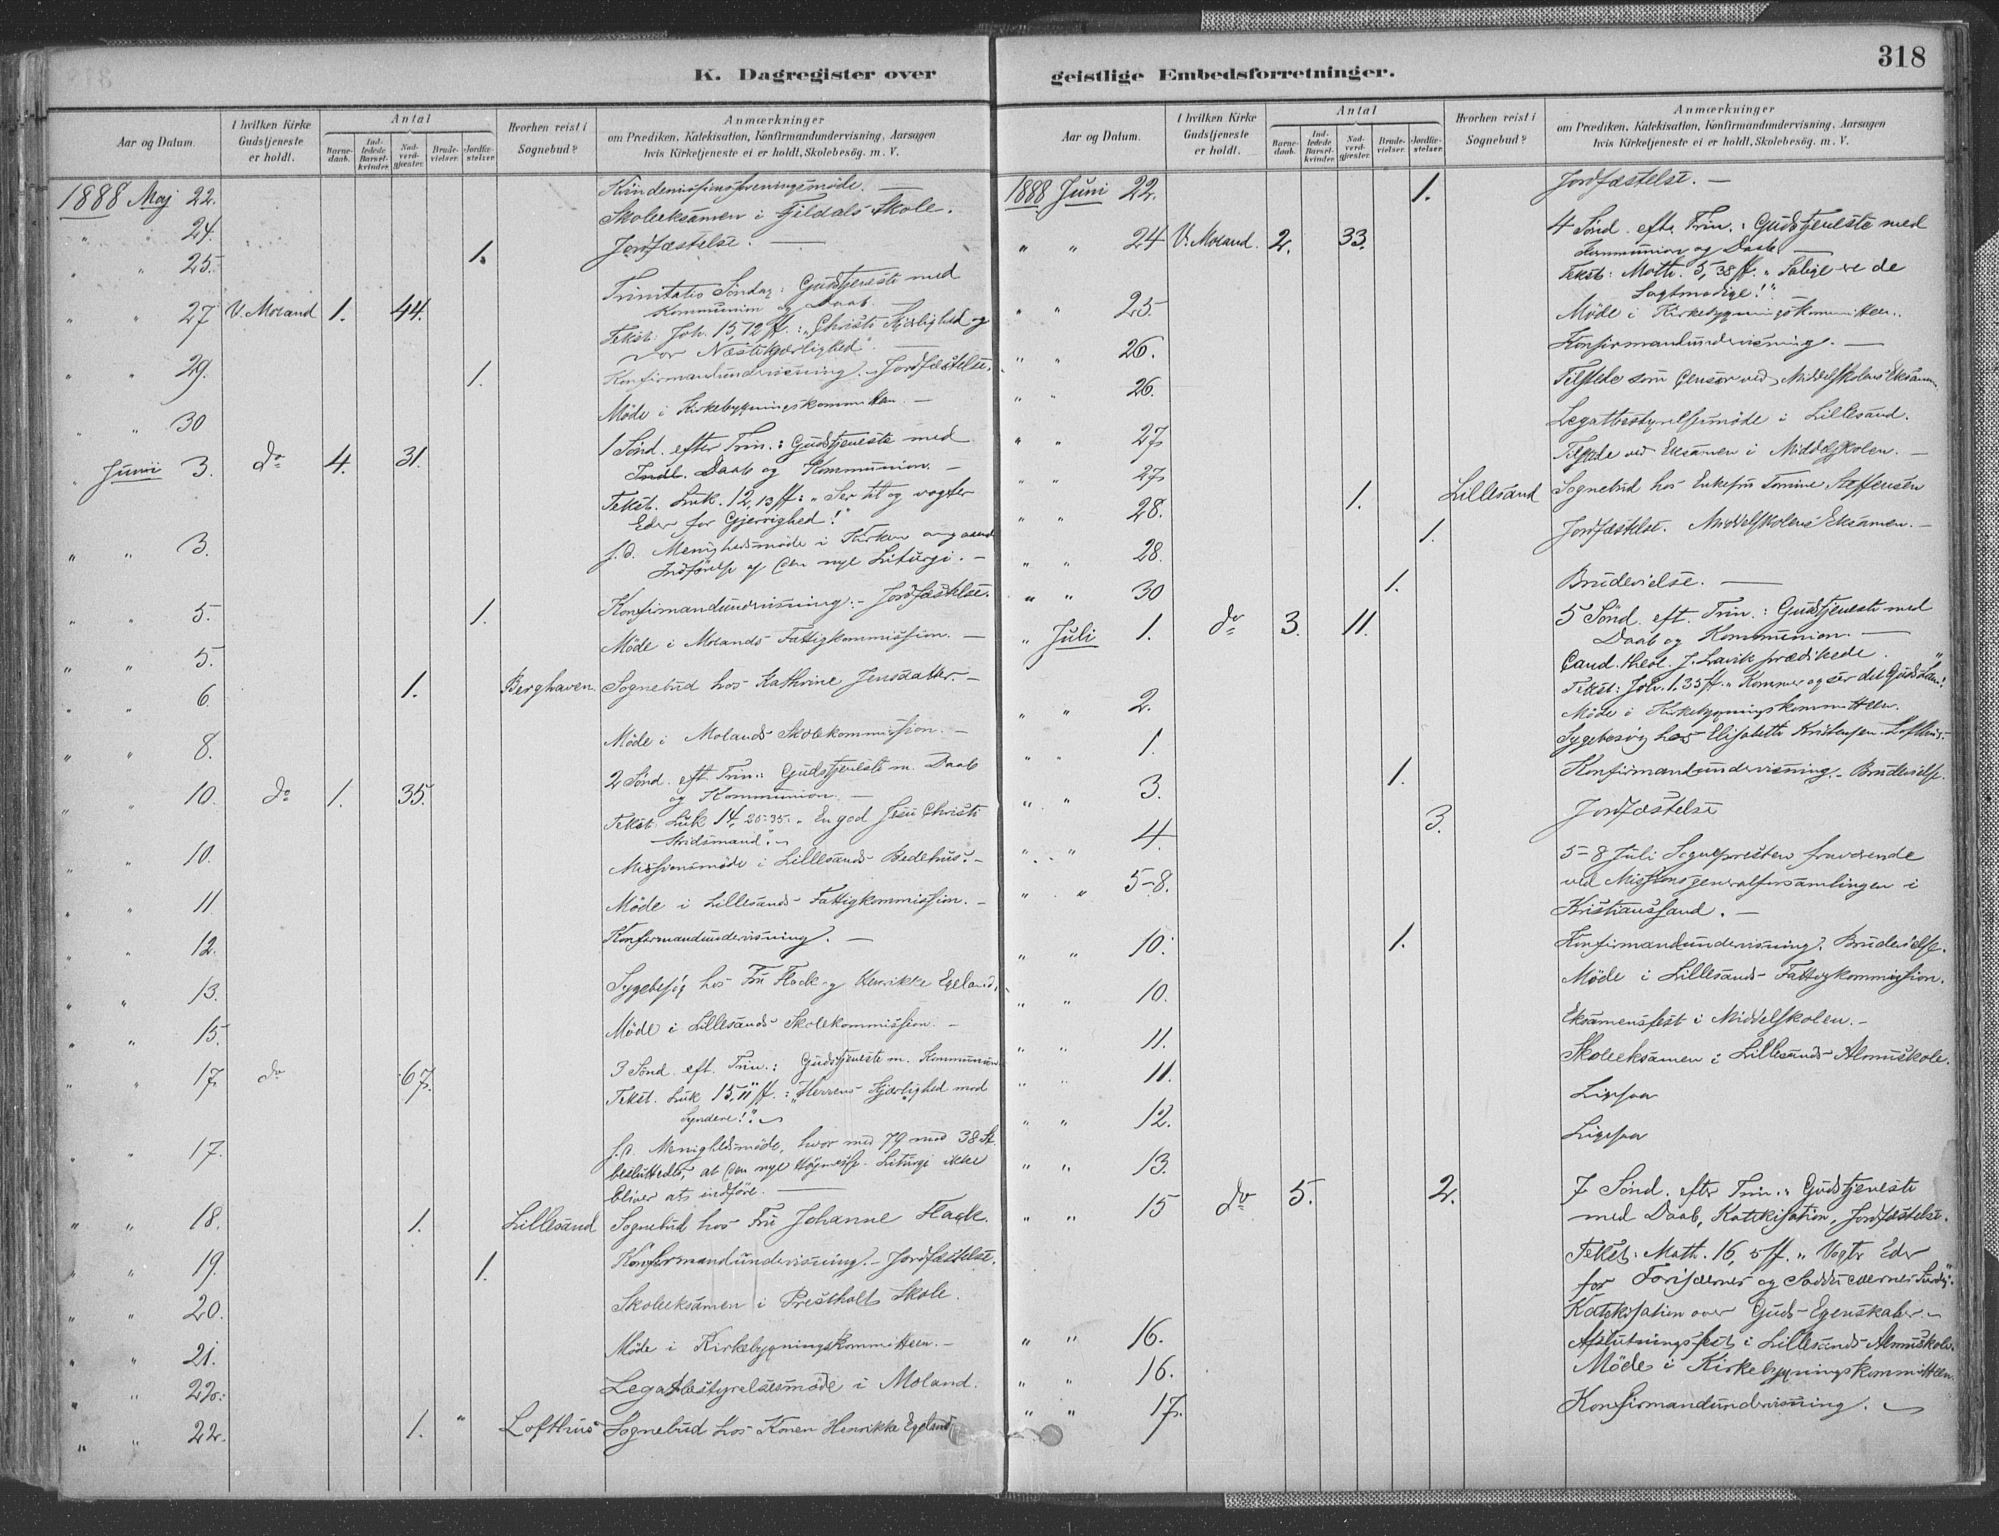 318
K. Dagregister over
Aar og Datum.
I hvilken Kirke Gudstjeneste er holdt.
Antal
Barnedaab.
Indledede Barselkvinder.
Nadverdgjester.
Brudevielser.
Jordfæstelser.
Hvorhen reist i Sognebud?
Anmærkninger
om Prædiken, Katekisation, Konfirmandundervisning, Aarsagen
hvis Kirketjeneste ei er holdt, Skolebesøg. m. V.
1888 Maj 22. Kvindemissionsforeningsmøde. —
" " 24. Skoleeksamen i Fjeldals Skole.
" " 25. 1. Jordfæstelse. —
" " 27 V. Moland 1. 44. Trinitatis Søndag: Gudstjeneste med
Kommunion og Daab.
Tekst: Joh. 15, 12 ff.: "Christi Kjærlighed og
vor Næstekjærlighed".
" " 29. 1. Konfirmandundervisning. Jordfæstelse.
" " 30 Møde i Kirkebygningskommitteen. —
" Juni 3. do 4. 31. 1 Sønd. efter Trin.: Gudstjeneste med
Indl. Daab og Kommunion. —
Tekst. Luk. 12, 13 ff: "Ser til og vogter
Eder for Gjerrighed!"
" " 3. s.d. Menighedsmøde i Kirken angaaende
Indførelse af den nye Liturgi. —
" " 5. 1. Konfirmandundervisning. – Jordfæstelse.
" " 5. Møde i Molands Fattigkommission. —
" " 6. 1. Berghaven. Sognebud hos Kathrine Jensdatter. —
" " 8. Møde i Molands Skolekommission. —
" " 10. do 1. 35. 2 Sønd. eft. Trin.: Gudstjeneste m. Daab
og Kommunion. —
Tekst: Luk 14, 25-35. "En god Jesu Christi
Stridsmand".
" " 10. Missionsmøde i Lillesands Bedehus. –
" " 11. Møde i Lillesands Fattigkommission. –
" " 12. Konfirmandundervisning. —
" " 13. Sygebesøg hos Fru Flack og Henrikke Egeland.
" " 15. Møde i Lillesands Skolekommission. —
" " 17. do 67. 3 Sønd. eft. Trin.: Gudstjeneste m. Kommunion
Tekst. Luk 15, 11 ff.: "Herrens Kjærlighed mod
Syndere!"
" " 17. s.d. Menighedsmøde, hvor med 79 mod 38 St.
besluttedes, at den nye Høymesse-Liturgi ikke
bliver at indføre. —
" " 18. 1. Lillesand Sognebud hos Fru Johanne Flack.
" " 19. 1. Konfirmandundervisning. – Jordfæstelse.
" " 20. Skoleeksamen i Prestholt Skole.
" " 21. Møde i Kirkebygningskommitteen. —
" " 22. Legatbestyrelsesmøde i Moland.
" " 22. 1. " Lofthus Sognebud hos Konen Henrikke Egeland
geistlige Embedsforretninger.
Aar og Datum.
I hvilken Kirke Gudstjeneste er holdt.
Antal
Barnedaab.
Indledede Barselkvinder.
Nadverdgjester.
Brudevielser.
Jordfæstelser.
Hvorhen reist i Sognebud?
Anmærkninger
om Prædiken, Katekisation, Konfirmandundervisning, Aarsagen
hvis Kirketjeneste ei er holdt, Skolebesøg. m. V.
1888 Juni 22. 1. Jordfæstelse. —
" " 24 V. Moland. 2. 33. 4 Sønd. efter Trin.: Gudstjeneste med
Kommunion og Daab —
Tekst: Math. 5, 38 ff. "Salige ere de
Sagtmodige!"
" " 25. Møde i Kirkebygningskommitteen.
" " 26. Konfirmandundervisning. —
" " 26. Tilstede som Censor ved Middelskolens Eksamen
" " 27. Legatbestyrelsesmøde i Lillesand.
" " 27. Tilstede ved Eksamen i Middelskolen. —
" " 28. 1. Lillesand Sognebud hos Enkefru Tomine Steffensen
" " 28. 1. Jordfæstelse. Middelskolens Eksamen. —
" " 30 1. Brudevielse. —
" Juli 1. do 3. 11. 5 Sønd. eft. Trin.: Gudstjeneste med
Daab og Kommunion. —
Cand. theol. J. Lavik prædikede.
Tekst: Joh. 1, 35 ff. "Kommer og ser det Guds Lam!"
" " 2. Møde i Kirkebygningskommitteen.
" " 1. Sygebesøg hos Elisabeth Kristensen Lofthus. –
" " 3. 1. Konfirmandundervisning. – Brudevielse.
" " 4. 3. Jordfæstelse
" " 5-8. 5-8 Juli Sognepresten fraværende
ved Missionsgeneralforsamlingen i
Kristianssand. —
" " 10. 1. Konfirmandundervisning. Brudevielse.
" " 10. Møde i Lillesands Fattigkommission.
" " 11. Eksamensfest i Middelskolen. –
" " 11. Skoleeksamen i Lillesands Almuskole.
" " 12. Ligesaa
" " 13. Ligesaa
" " 15 do 5. 2. 7 Sønd. efter Trin.: Gudstjeneste
med Daab, Katekisation, Jordfæstelse.
Tekst: Math. 16, 5 ff. "Vogter Eder
for Farisæernes og Sadducæernes Surdej".
Katekisation over Guds Egenskaber. –
" " 16. Afslutningsfest i Lillesands Almuskole.
" " 16. Møde i Kirkebygningskommitteen
" " 17. Konfirmandundervisning.